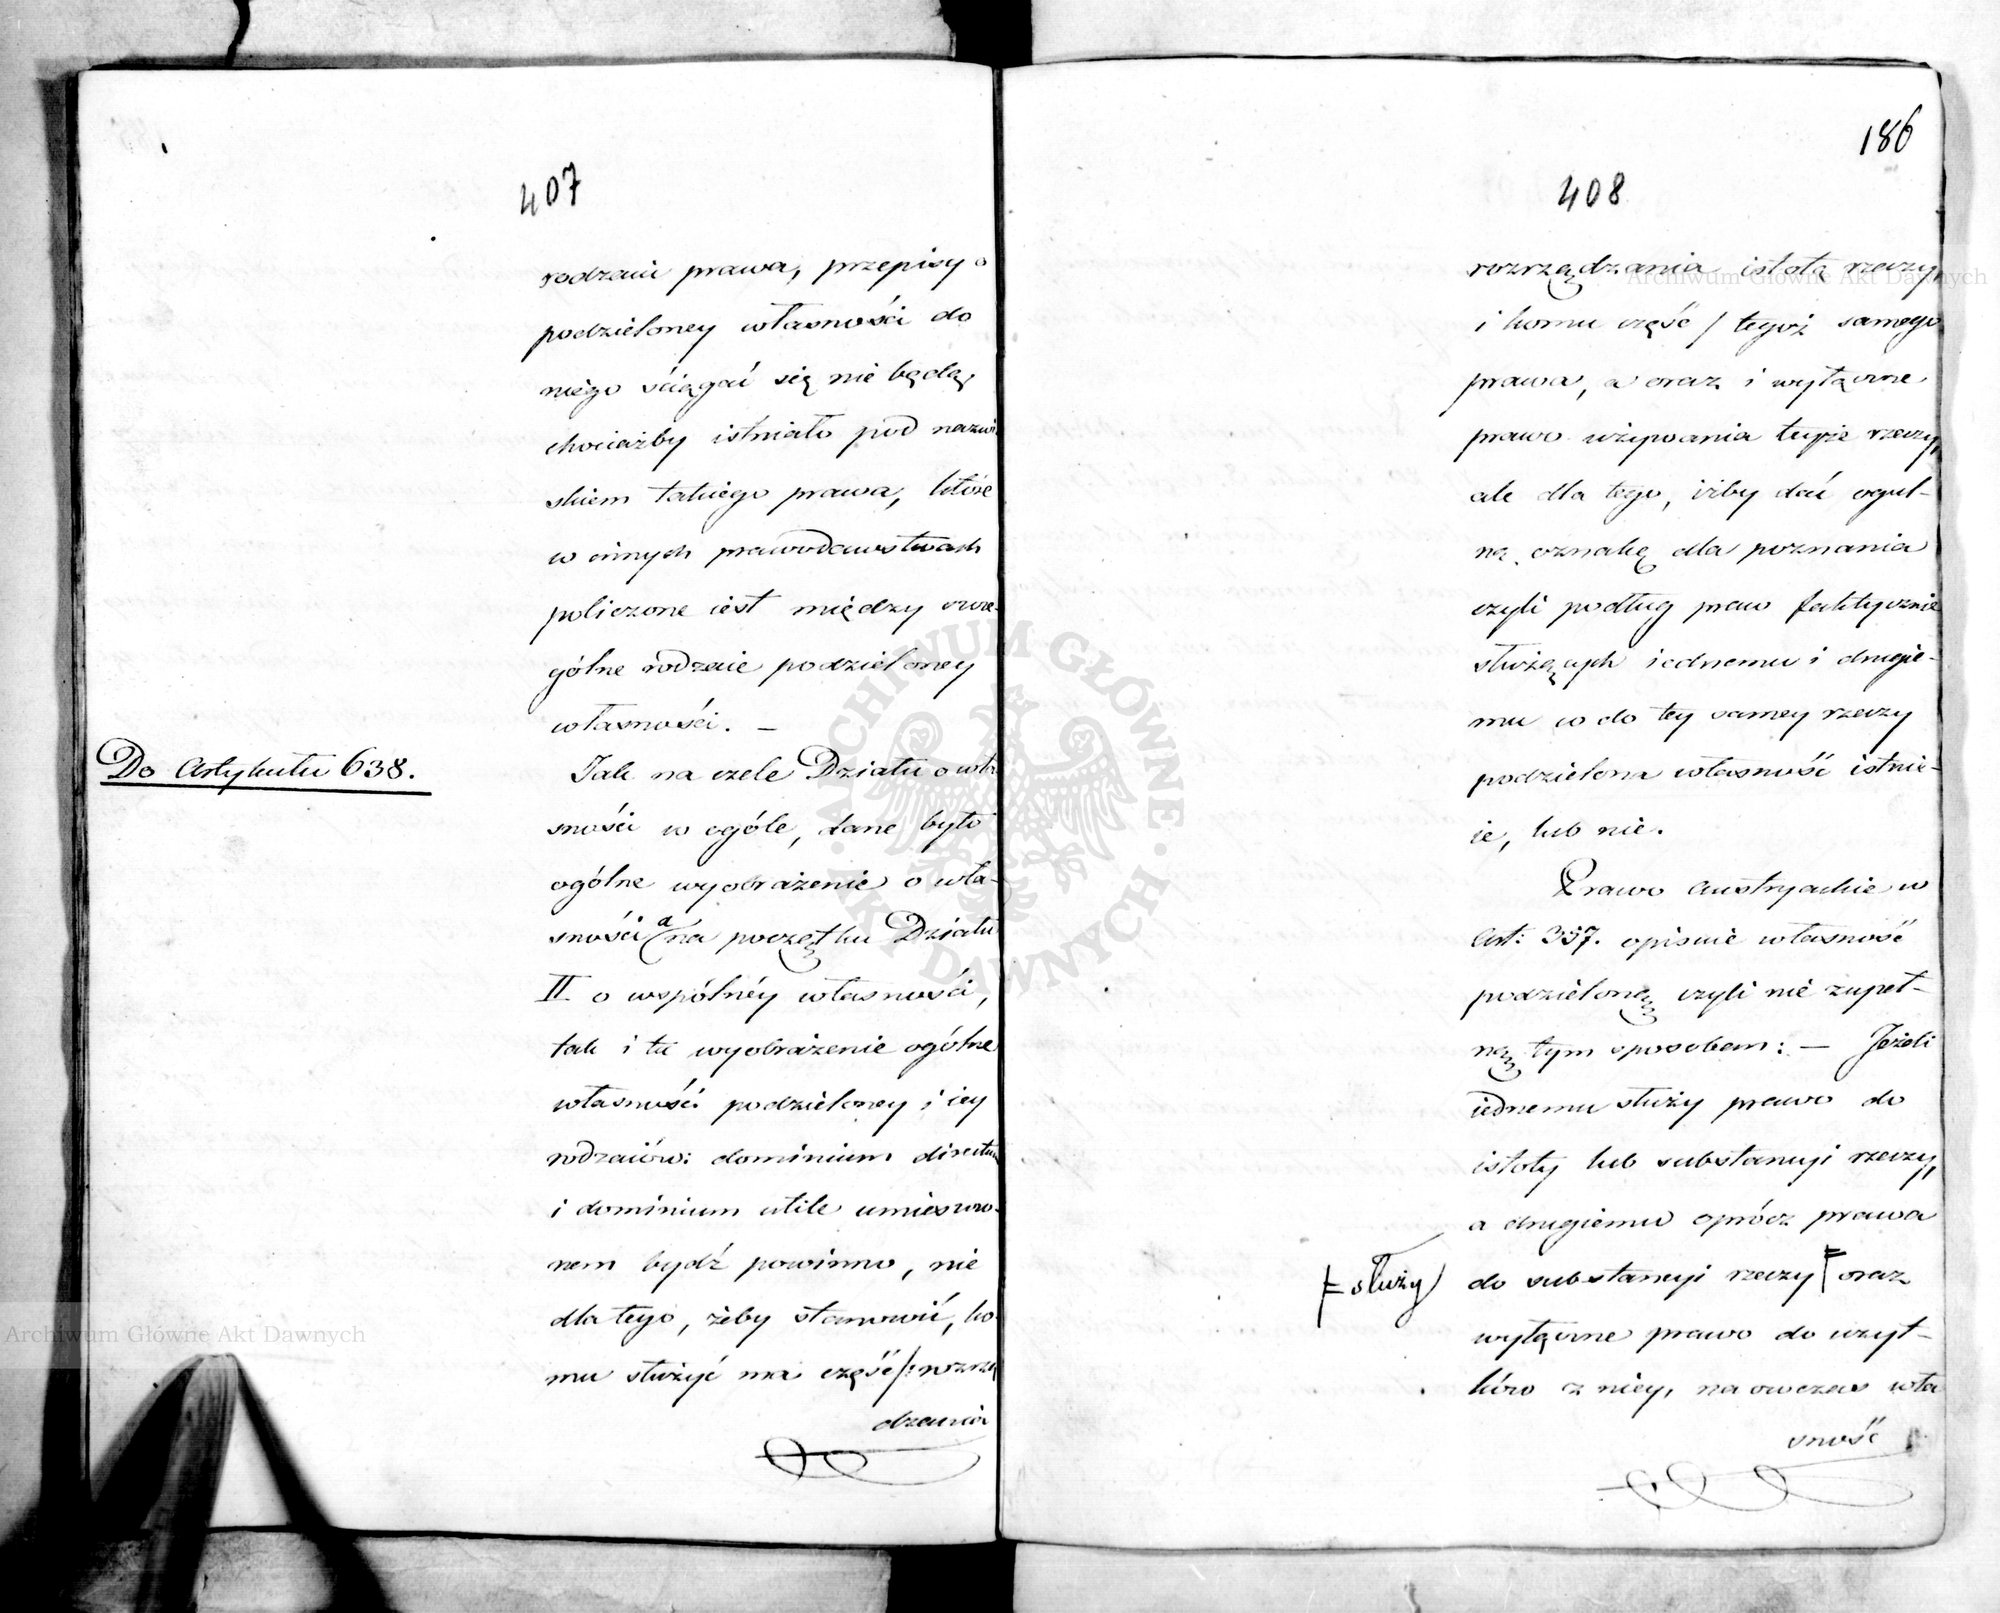 407
rodzaiu prawa, przepisy o
podzieloney własności do
niego ściągać się nie będą,
chociażby istniało pod nazwi-
skiem takiego prawa, które
w innych prawodawstwach
policzone iest między szcze-
gólne rodzaie podzieloney
własności. –
Do Artykułu 638.
Jak na czele Działu o wła-
sności w ogóle, dane było
ogólne wyobrażenie o wła-
sności a na początku Działu
II o wspólnéy własności,
tak i tu wyobrażenie ogólne
własności podzieloney i iey
rodzaiów: dominium directum
i dominium utile umieszczo-
nem bydź powinno, nie
dla tego, żeby stanowić, ko-
mu służyć ma część /: rozrzą
dzania
186
408
rozrządzania istotą rzeczy
i komu część / tegoż samego
prawa, a oraz i wyłączne
prawo używania teyże rzeczy,
ale dla tego, iżby dać ogul-
ną oznakę dla poznania
czyli podług praw faktycznie
służących iednemu i drugie-
mu w do tey samey rzeczy
podzielona własność istnie-
ie, lub nie.
Prawo Austryackie w
Art: 357. opisuie własność
podzieloną czyli nie zupeł-
ną tym sposobem: – Jeżeli
iednemu służy prawo do
istoty lub substancyi rzeczy,
a drugiemu oprócz prawa
do substancyi rzeczy oraz
służy
wyłączne prawo do użyt-
ków z niey, na owczas wła
sność
Archiwum Główne Akt Dawnych
Archiwum Główne Akt Dawnych
· ARCHIWUM GŁÓWNE · AKT DAWNYCH